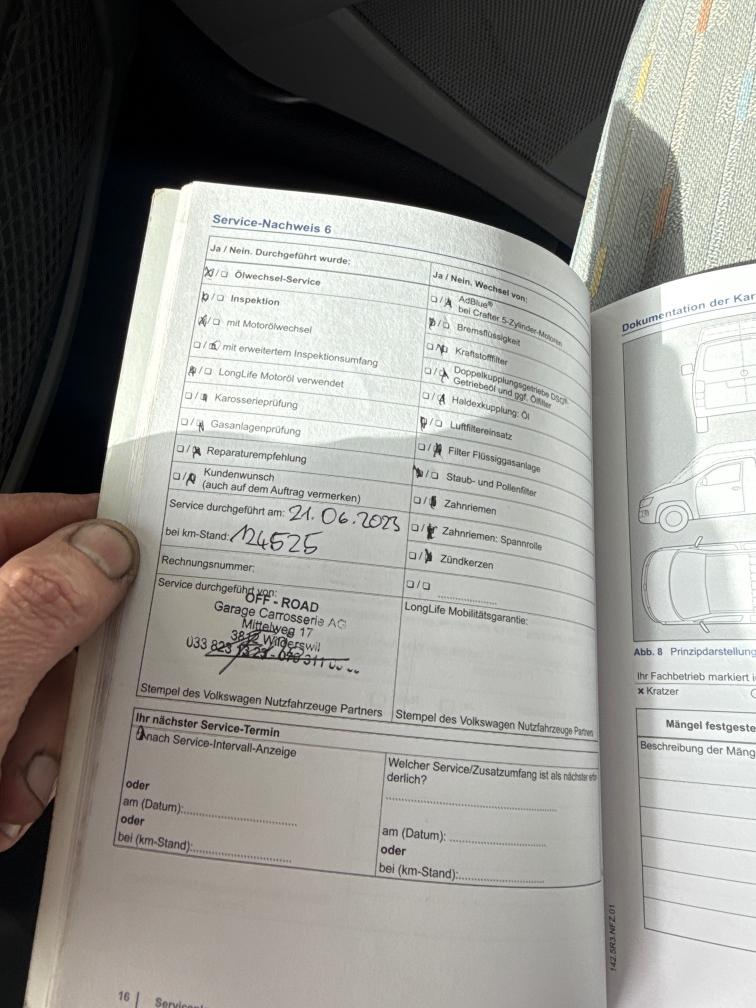 Service-Nachweis 6
Ja / Nein. Durchgeführt wurde:
☒/☐ Ölwechsel-Service
☒/☐ Inspektion
☒/☐ mit Motorölwechsel
☐/☒ mit erweitertem Inspektionsumfang
☒/☐ LongLife Motoröl verwendet
☐/☒ Karosserieprüfung
☐/☒ Gasanlagenprüfung
☐/☒ Reparaturempfehlung
☐/☒ Kundenwunsch
(auch auf dem Auftrag vermerken)
Service durchgeführt am: 21.06.2023
bei km-Stand: 124525
Rechnungsnummer:
Service durchgeführt von:
OFF - ROAD
Garage Carrosserie AG
Mittelweg 17
3812 Wilderswil
033 823
Stempel des Volkswagen Nutzfahrzeuge Partners
Ja / Nein. Wechsel von:
☐/☒ AdBlue®
bei Crafter 5-Zylinder-Motoren
☒/☐ Bremsflüssigkeit
☐/☒ Kraftstofffilter
☐/☒ Doppelkupplungsgetriebe DSG®:
Getriebeöl und ggf. Ölfilter
☐/☒ Haldexkupplung: Öl
☒/☐ Luftfiltereinsatz
☐/☒ Filter Flüssiggasanlage
☒/☐ Staub- und Pollenfilter
☐/☒ Zahnriemen
☐/☒ Zahnriemen: Spannrolle
☐/☒ Zündkerzen
☐/☐ ....................
LongLife Mobilitätsgarantie:
Stempel des Volkswagen Nutzfahrzeuge Partners
Ihr nächster Service-Termin
nach Service-Intervall-Anzeige
oder
am (Datum):....................
oder
bei (km-Stand):....................
Welcher Service/Zusatzumfang ist als nächster
derlich?
....................
am (Datum): ....................
oder
bei (km-Stand):....................
16
Dokumentation der
Abb. 8 Prinzipdarstellung
Ihr Fachbetrieb markiert
× Kratzer
Mängel
Beschreibung der
142.5R3.NFZ.01